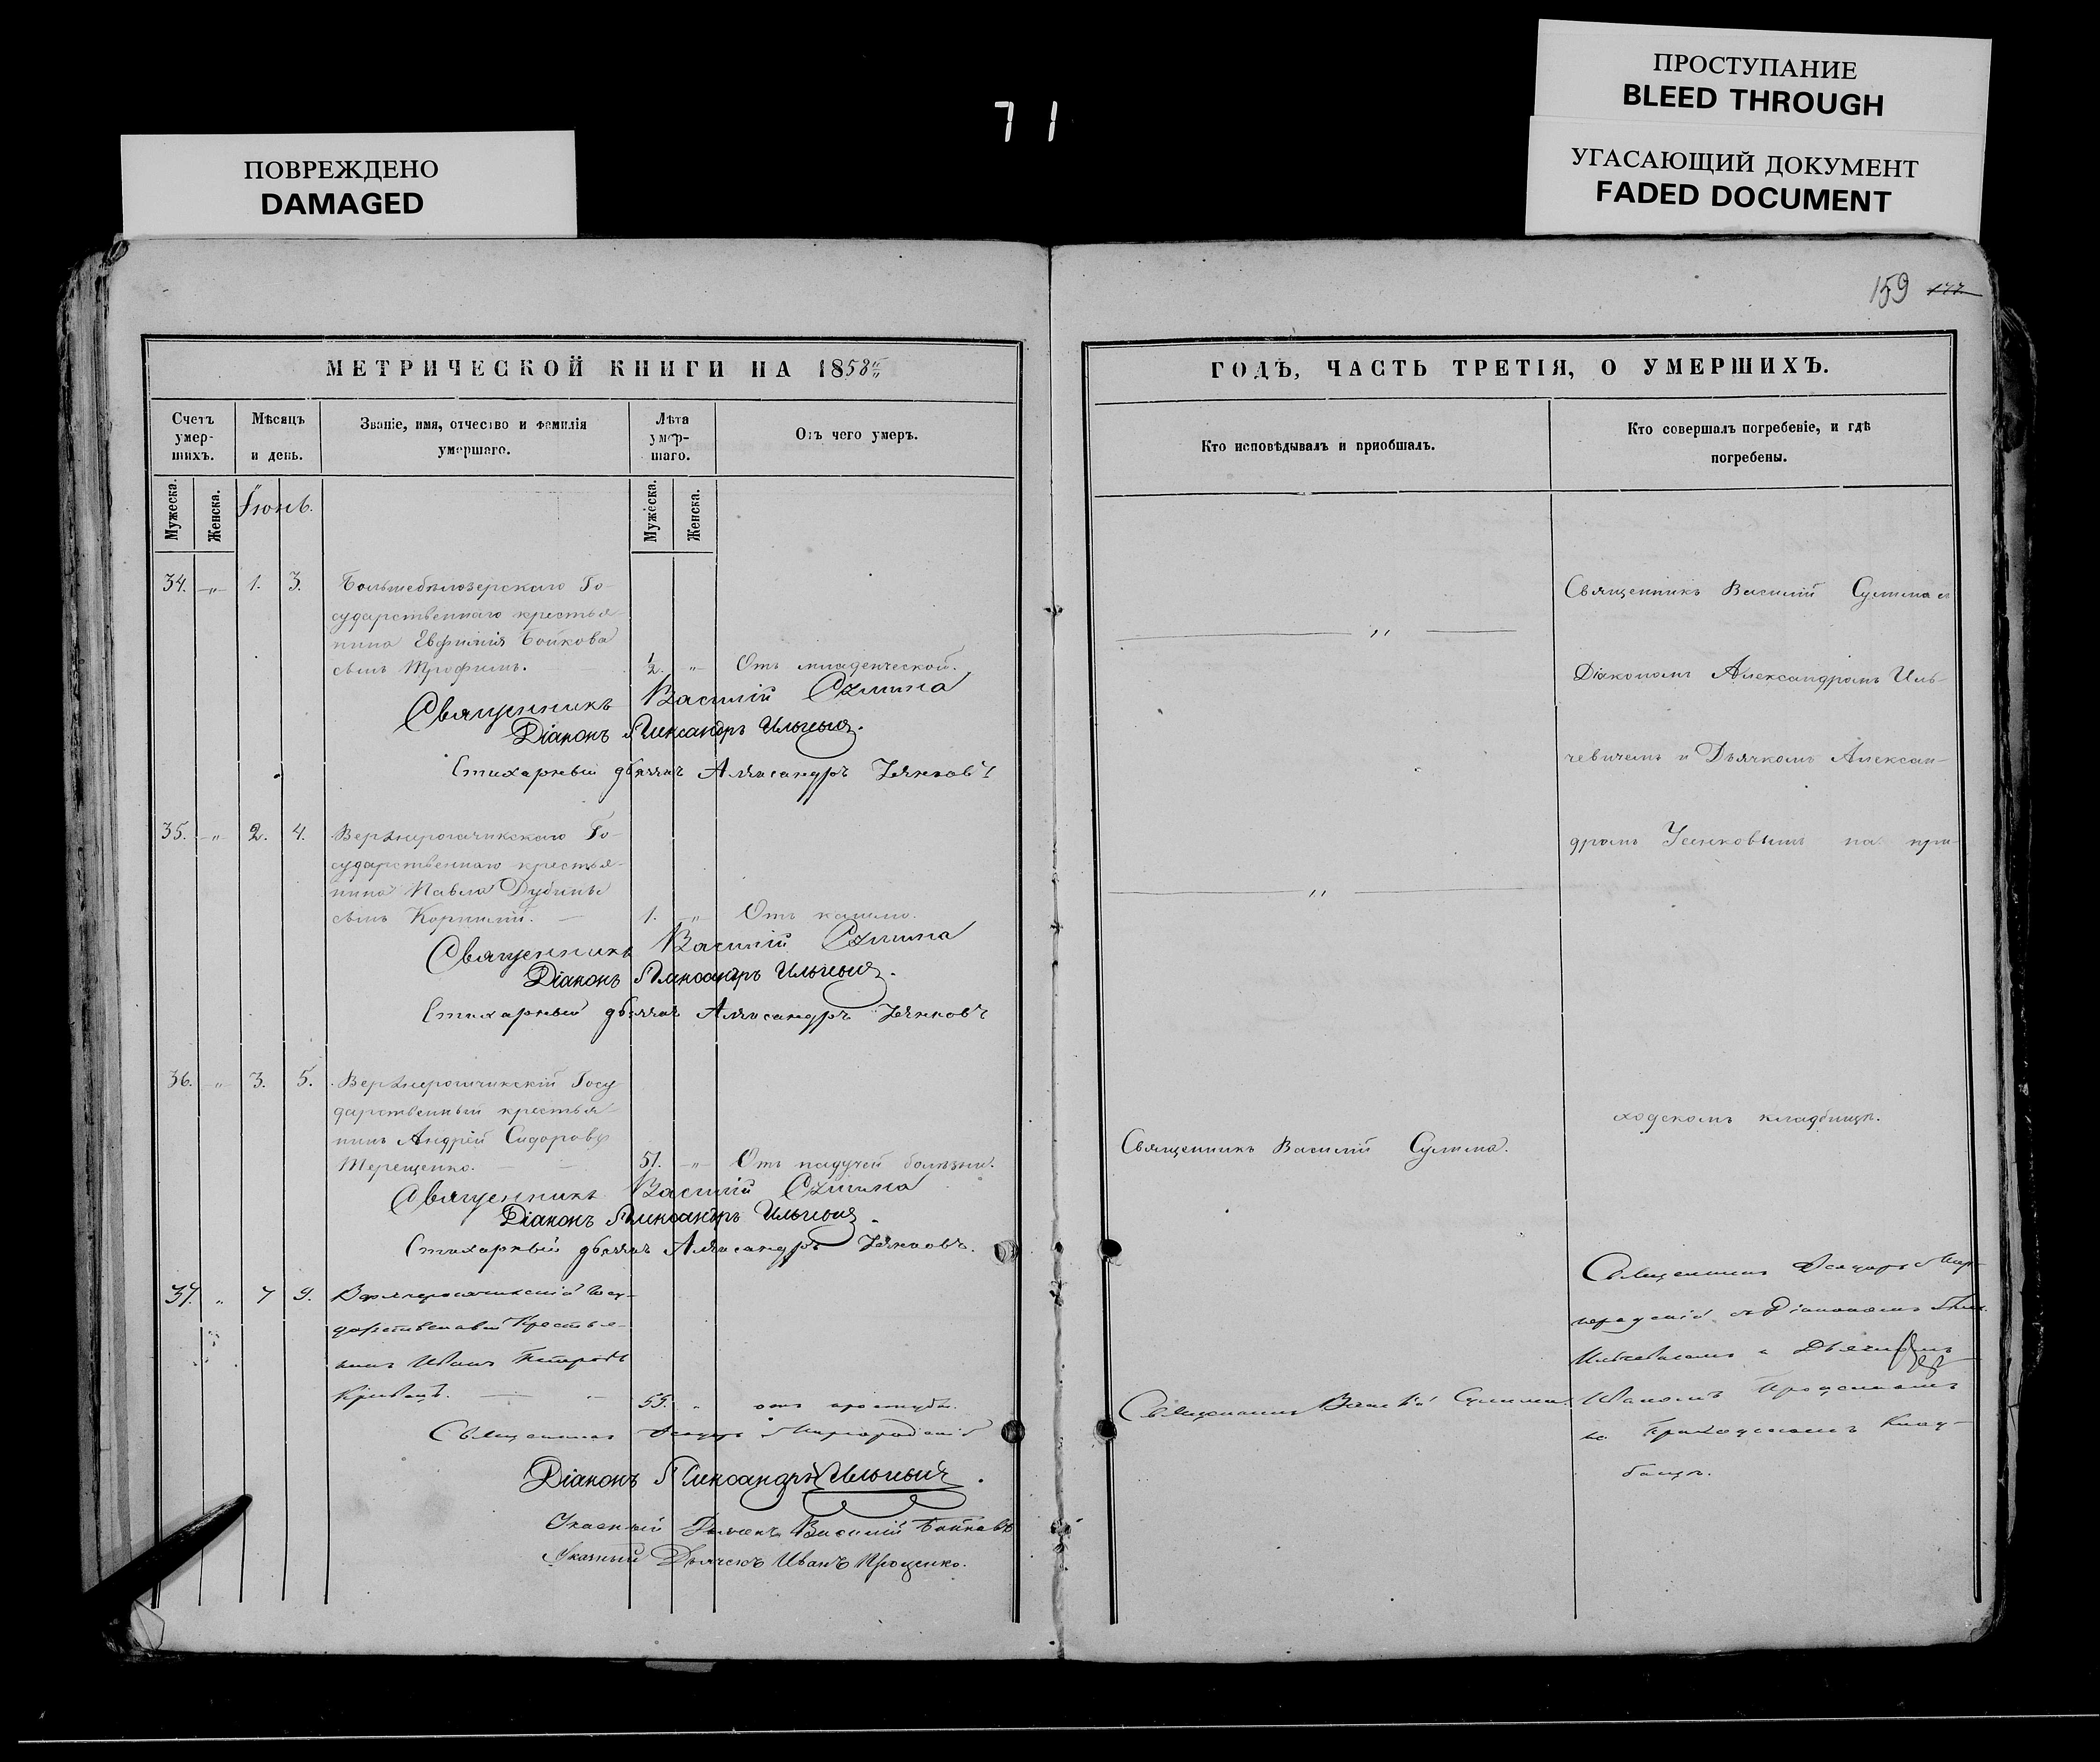 ПРОСТУПАНИЕ
BLEED THROUGH
УГАСАЮЩИЙ ДОКУМЕНТ
FADED DOCUMENT
ПОВРЕЖДЕНО
DAMAGED
71
159 177.
МЕТРИЧЕСКОЙ КНИГИ НА 1858
Счетъ умер-
шихъ.
Мѣсяцъ
и день.
Званіе, имя, отчество и фамилія
умершаго.
Лѣта
умер-
шаго.
Отъ чего умеръ.
Мужеска.
Женска.
Іюнь.
Мужеска.
Женска.
34. „ 1. 3. Большебѣлозерскаго Го-
сударственнаго крестья-
нина Евфимія Бойкова
сынъ Трофимъ. ½. „ Отъ младенческой.
Священникъ Василій Сулима
Діаконъ Александръ Ильчевичъ.
Стихарный дьячекъ Александръ Усенковъ
35. „ 2. 4. Верхнерогачикскаго Го-
сударственнаго крестья-
нина Павла Дубины
сынъ Корнилій. 1. „ Отъ кашлю.
Священникъ Василій Сулима
Діаконъ Александръ Ильчевичъ.
Стихарный дьячекъ Александръ Усенковъ
36. „ 3. 5. Верхнерогачикскій Госу
дарственный крестья-
нинъ Андрей Сидоровъ
Терещенко. 51. „ Отъ падучей болѣзни.
Священникъ Василій Сулима
Діаконъ Александръ Ильчевичъ.
Стихарный дьячекъ Александръ Усенковъ.
37. „ 7 9. Верхнерогачикскій Госу-
дарственный Крестья-
нинъ Иванъ Петровъ
55. „ отъ простуды.
Священникъ
Діаконъ Александръ Ильчевичъ.
Указный Василій Бойковъ
Указный Дьячекъ Иванъ Проценко.
ГОДЪ, ЧАСТЬ ТРЕТІЯ, О УМЕРШИХЪ.
Кто исповѣдывалъ и пріобщалъ.
Кто совершалъ погребеніе, и гдѣ
погребены.
„
„
Священникъ Василій Сулима.
Священникъ Василій Сулима.
Священникъ Василій Сулима съ
Діакономъ Александромъ Иль-
чевичемъ и Дьячкомъ Алексан-
дромъ Усенковымъ на при-
ходскомъ кладбищѣ.
Священникъ
съ Діакономъ
Ильчевичемъ и Дьячкомъ
Иваномъ Проценкомъ
на Приходскомъ Клад-
бищѣ.